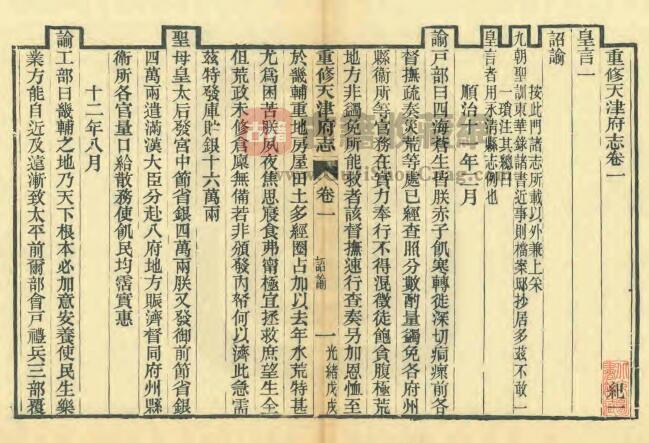 重修天津府志卷一
皇言一
詔諭
按此門諸志所載以外兼上采
九朝聖訓東華錄諸書近事則檔案邸抄居多茲不敢一
一瑣注其總曰
皇言者用永清縣志例也
順治十一年二月
諭戶部曰四海蒼生皆朕赤子飢寒轉徙深切痌瘝前各
督撫疏奏災荒等處已經查照分數酌量蠲免各府州
縣衞所等官務在實力奉行不得混徵徒飽貪腹極荒
地方非蠲免所能救者該督撫速行查奏另加恩恤至
重修天津府志
卷一
詔諭
一
光緒戊戌
於畿輔重地房屋田土多經圈占加以去年水荒特甚
尤爲困苦朕夙夜焦思寢食弗甯極宜拯救庶望生全
但荒政未修倉廩無備若非頒發內帑何以濟此急需
茲特發庫貯銀十六萬兩
聖母皇太后發宮中節省銀四萬兩朕又發御前節省銀
四萬兩遣滿漢大臣分赴八府地方賑濟督同府州縣
衞所各官量口給散務使飢民均霑實惠
十二年八月
諭工部曰畿輔之地乃天下根本必加意安養使民生樂
業方能自近及遠漸致太平前爾部會戶禮兵三部覆
紀一